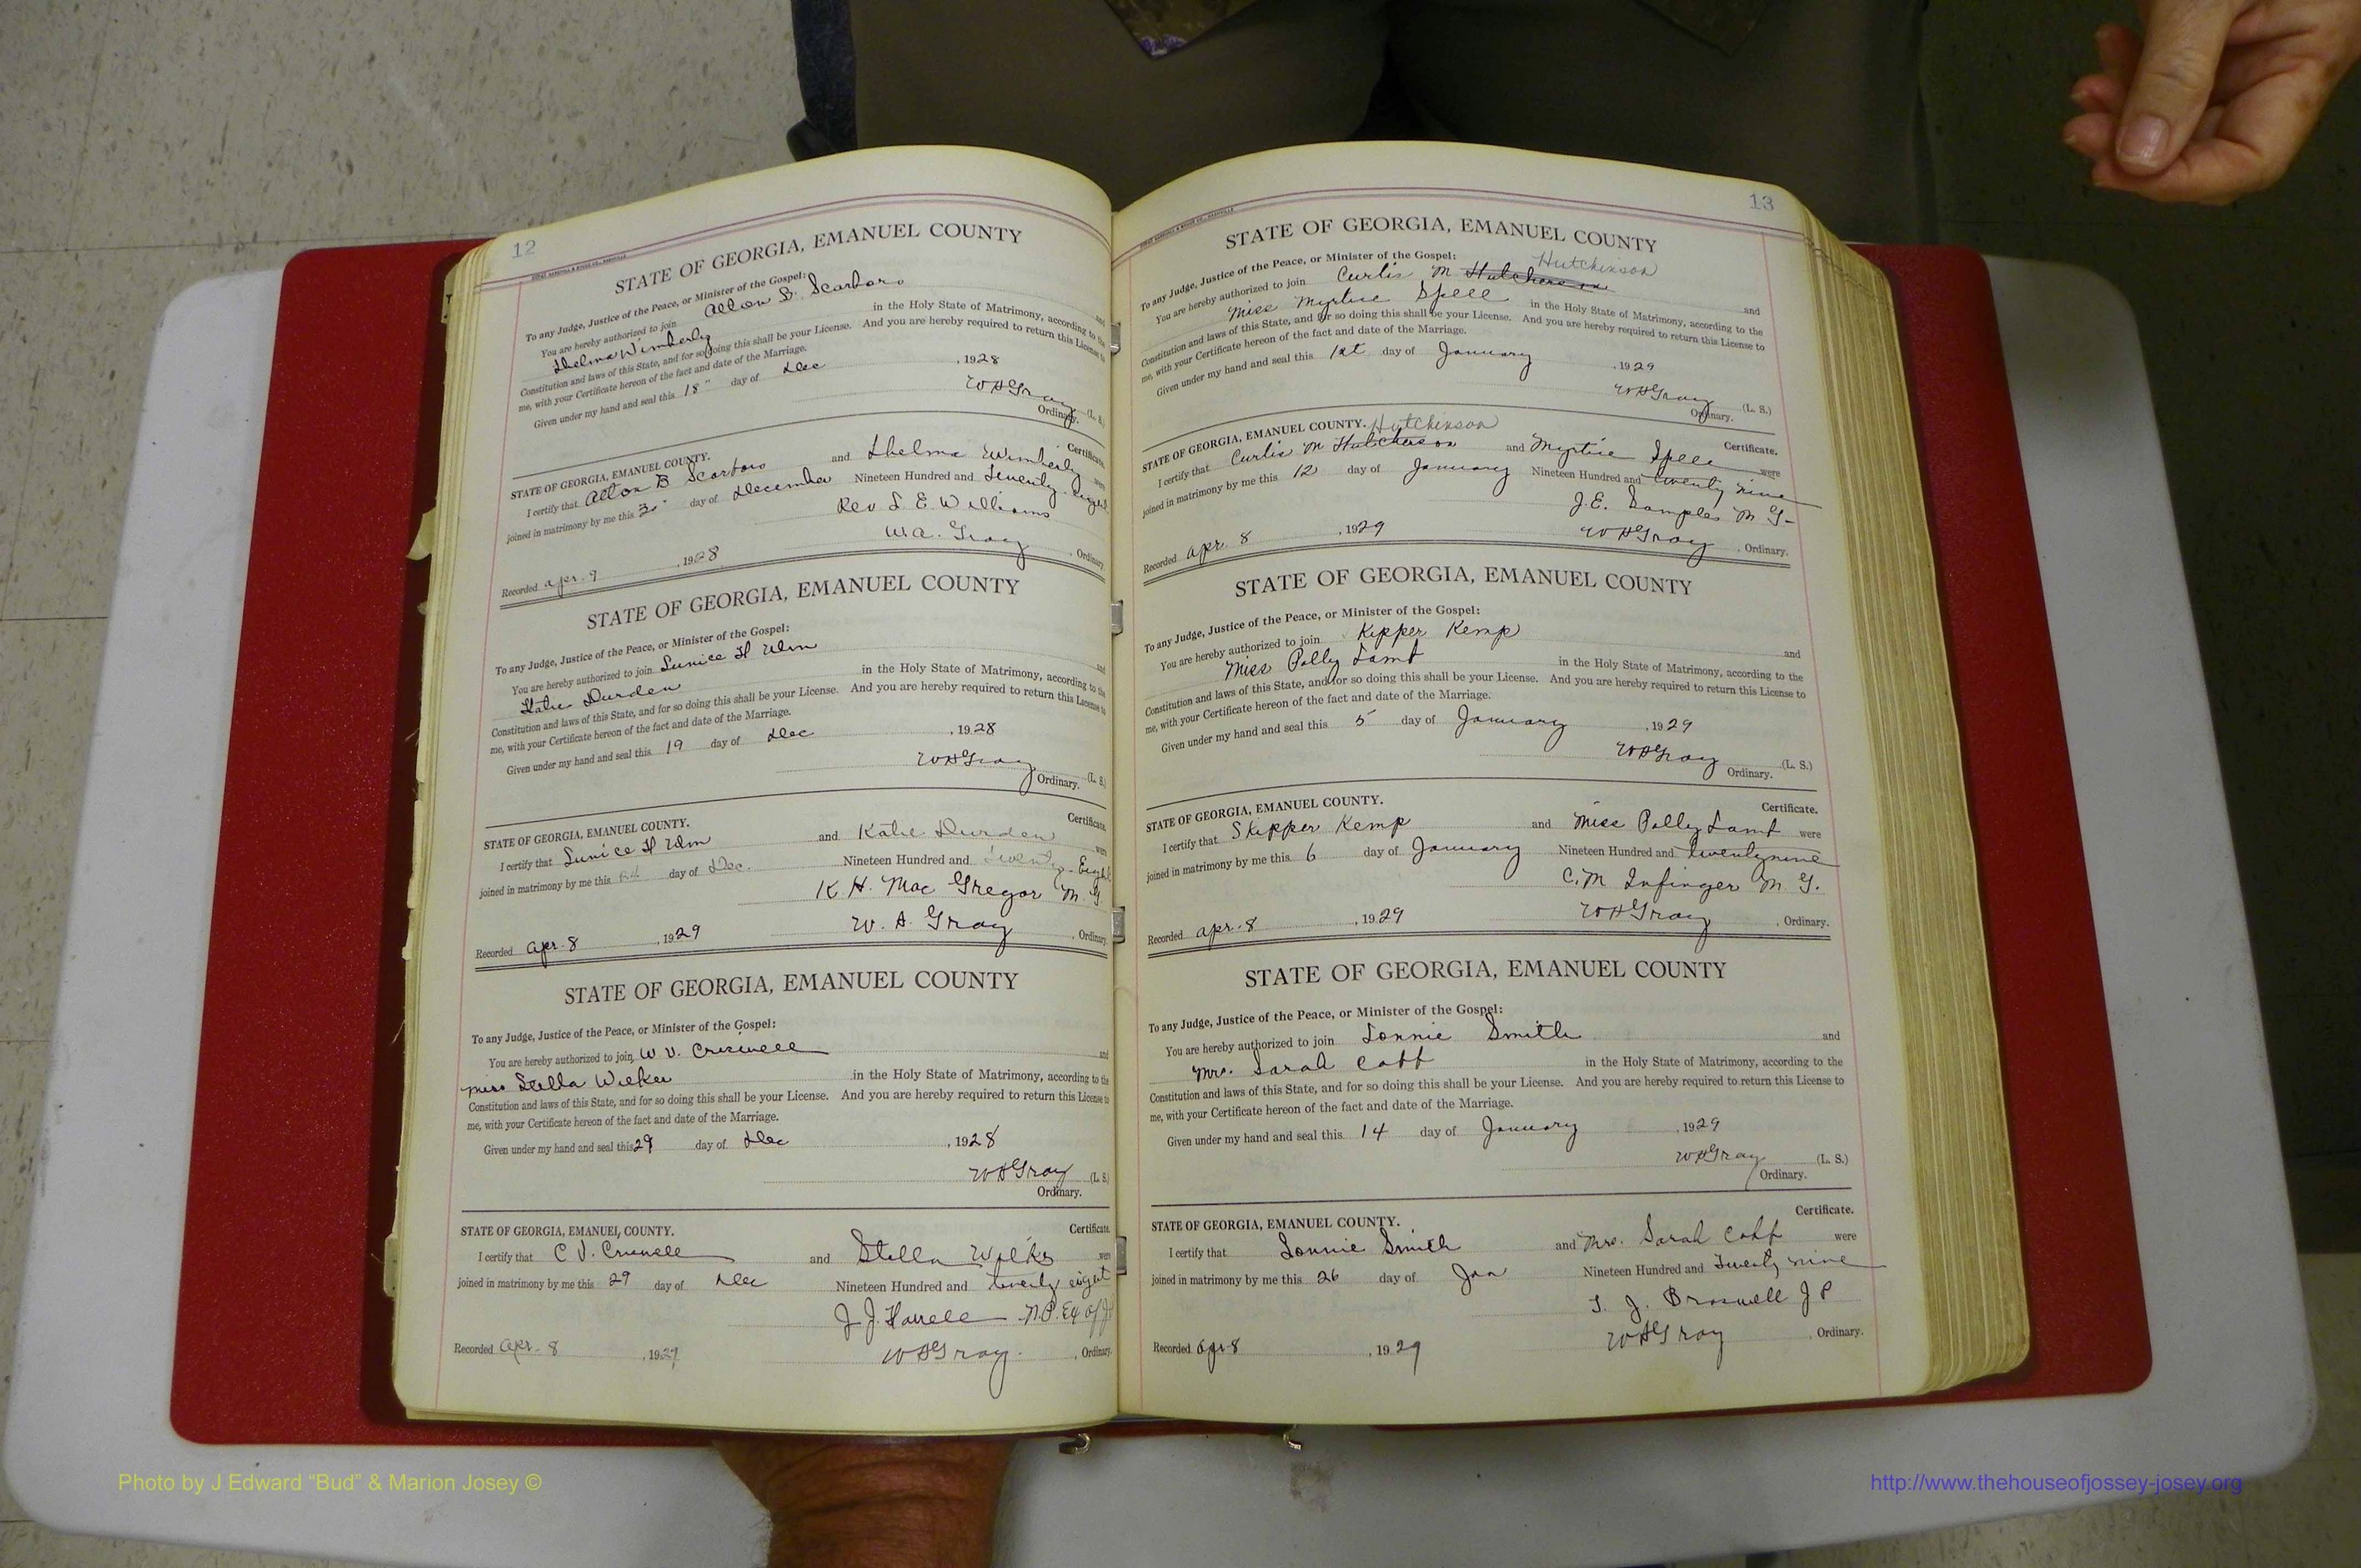 12
STATE OF GEORGIA, EMANUEL COUNTY
To any Judge, Justice of the Peace, or Minister of the Gospel:
You are hereby authorized to join Alton B. Scarboro and
Thelma Wimberly in the Holy State of Matrimony, according to the
Constitution and laws of this State, and for so doing this shall be your License. And you are hereby required to return this License to
me, with your Certificate hereon of the fact and date of the Marriage.
Given under my hand and seal this 18" day of Dec , 1928
WAGray (L. S.)
Ordinary.
STATE OF GEORGIA, EMANUEL COUNTY. Certificate.
I certify that Alton B Scarboro and Thelma Wimberly were
joined in matrimony by me this day of December Nineteen Hundred and Twenty-Eight
Rev L. E. Williams
Recorded Apr. 9 , 1928 W.A. Gray , Ordinary.
STATE OF GEORGIA, EMANUEL COUNTY
To any Judge, Justice of the Peace, or Minister of the Gospel:
You are hereby authorized to join Eunice H Ulm and
Katie Durden in the Holy State of Matrimony, according to the
Constitution and laws of this State, and for so doing this shall be your License. And you are hereby required to return this License to
me, with your Certificate hereon of the fact and date of the Marriage.
Given under my hand and seal this 19 day of Dec , 1928
WAGray (L. S.)
Ordinary.
STATE OF GEORGIA, EMANUEL COUNTY. Certificate.
I certify that Eunice H Ulm and Katie Durden were
joined in matrimony by me this day of Dec. Nineteen Hundred and Twenty-Eight
K. H. Mac Gregor M.G.
Recorded Apr. 8 , 1929 W. A. Gray , Ordinary.
STATE OF GEORGIA, EMANUEL COUNTY
To any Judge, Justice of the Peace, or Minister of the Gospel:
You are hereby authorized to join W. V. Criswell and
Miss Stella Wilkes in the Holy State of Matrimony, according to the
Constitution and laws of this State, and for so doing this shall be your License. And you are hereby required to return this License to
me, with your Certificate hereon of the fact and date of the Marriage.
Given under my hand and seal this 29 day of Dec , 1928
WAGray (L. S.)
Ordinary.
STATE OF GEORGIA, EMANUEL COUNTY. Certificate.
I certify that C V. Criswell and Stella Wilks were
joined in matrimony by me this 29 day of Dec Nineteen Hundred and twenty eight
J. J. Harrell N.P. Ex of J
Recorded Apr. 8 , 1929 WAGray. , Ordinary.
13
STATE OF GEORGIA, EMANUEL COUNTY
To any Judge, Justice of the Peace, or Minister of the Gospel: Hutchinson
You are hereby authorized to join Curtis M Hutcherson and
Miss Myrtice Spell in the Holy State of Matrimony, according to the
Constitution and laws of this State, and for so doing this shall be your License. And you are hereby required to return this License to
me, with your Certificate hereon of the fact and date of the Marriage.
Given under my hand and seal this 1st day of January , 1929
WAGray (L. S.)
Ordinary.
STATE OF GEORGIA, EMANUEL COUNTY. Hutchinson Certificate.
I certify that Curtis M Hutcherson and Myrtice Spell were
joined in matrimony by me this 12 day of January Nineteen Hundred and twenty nine
J.E. Samples M G-
Recorded Apr. 8 , 1929 WAGray , Ordinary.
STATE OF GEORGIA, EMANUEL COUNTY
To any Judge, Justice of the Peace, or Minister of the Gospel:
You are hereby authorized to join Kipper Kemp and
Miss Polly Lamb in the Holy State of Matrimony, according to the
Constitution and laws of this State, and for so doing this shall be your License. And you are hereby required to return this License to
me, with your Certificate hereon of the fact and date of the Marriage.
Given under my hand and seal this 5 day of January , 1929
WAGray (L. S.)
Ordinary.
STATE OF GEORGIA, EMANUEL COUNTY. Certificate.
I certify that Skipper Kemp and Miss Polly Lamb were
joined in matrimony by me this 6 day of January Nineteen Hundred and twentynine
C.M Infinger M. G.
Recorded Apr. 8 , 1929 WAGray , Ordinary.
STATE OF GEORGIA, EMANUEL COUNTY
To any Judge, Justice of the Peace, or Minister of the Gospel:
You are hereby authorized to join Lonnie Smith and
Mrs. Sarah Cobb in the Holy State of Matrimony, according to the
Constitution and laws of this State, and for so doing this shall be your License. And you are hereby required to return this License to
me, with your Certificate hereon of the fact and date of the Marriage.
Given under my hand and seal this 14 day of January , 1929
WAGray (L. S.)
Ordinary.
STATE OF GEORGIA, EMANUEL COUNTY. Certificate.
I certify that Lonnie Smith and Mrs. Sarah Cobb were
joined in matrimony by me this 26 day of Jan Nineteen Hundred and Twenty nine
T. J. Braswell J P
Recorded Apr 8 , 1929 WAGray , Ordinary.
Photo by J Edward “Bud” & Marion Josey ©
http://www.thehouseofjossey-josey.org